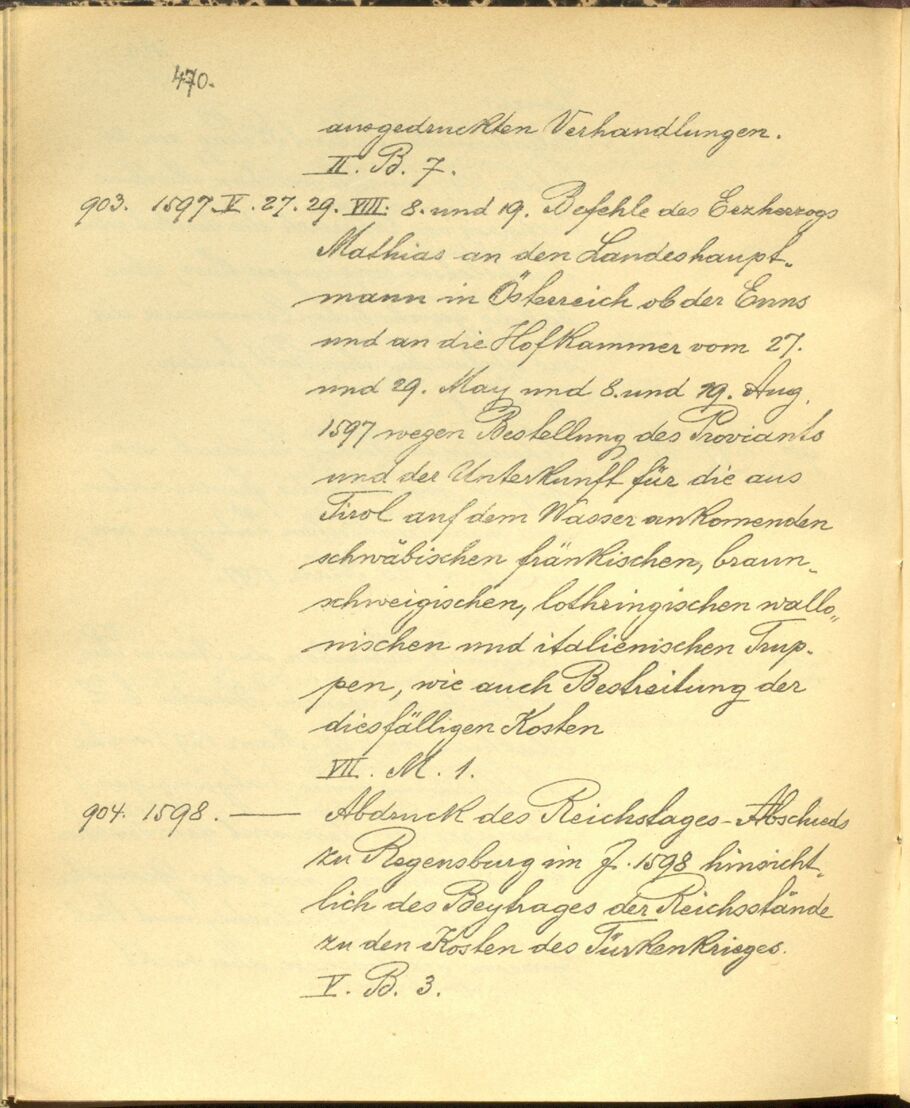 470.
ausgedruckten Verhandlungen.
II. B. 7.
903. 1597. V. 27. 29. VIII. 8. und 19. Befehle des Erzherzogs
Mathias an den Landeshaupt-
mann in Österreich ob der Enns
und an die Hofkammer vom 27.
und 29. May und 8. und 19. Aug.
1597 wegen Bestellung des Proviants
und der Unterkunft für die aus
Tirol auf dem Wasser ankomenden
schwäbischen fränkischen, braun-
schweigischen, lothringischen wallo-
nischen und italienischen Trup-
pen, wie auch Bestreitung der
diesfälligen Kosten
VII. M. 1.
904. 1598. — Abdruck des Reichstages-Abschieds
zu Regensburg im J. 1598 hinsicht-
lich des Beytrages der Reichsstände
zu den Kosten des Türkenkrieges.
V. B. 3.